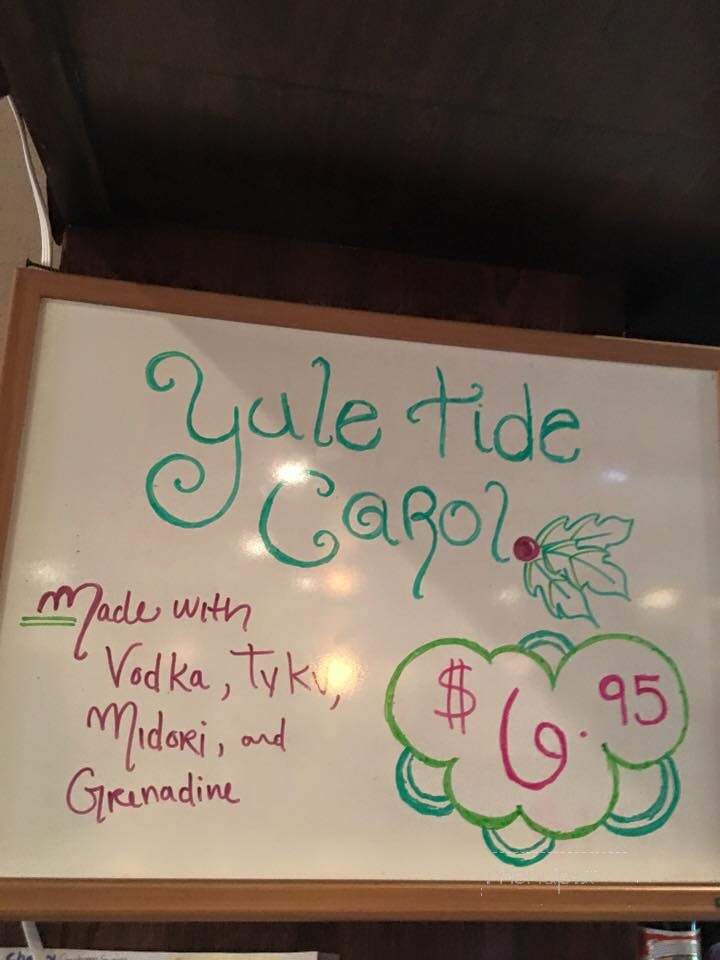 Yule Tide
Carol
Made with
Vodka, Tyku,
Midori, and
Grenadine
$6.95